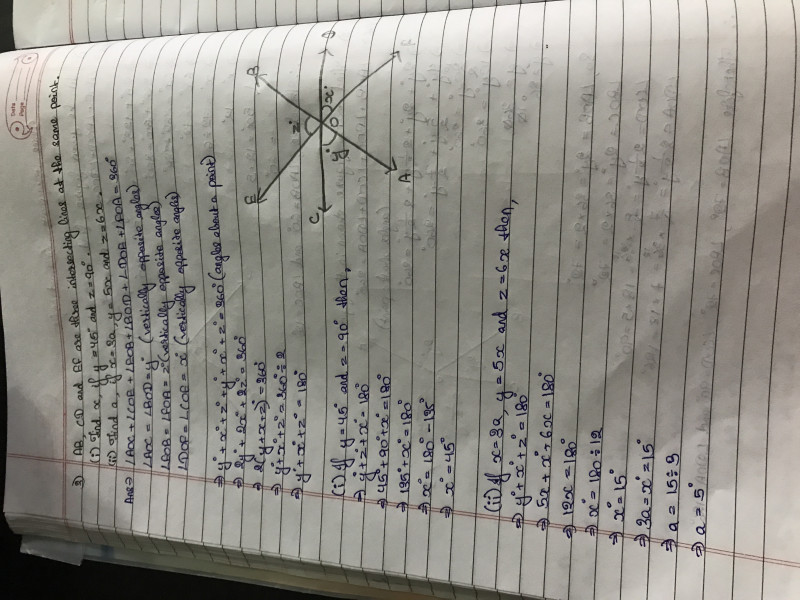 Date
Page
3) AB, CD and EF are three intersecting lines at the same point.
(i) Find x, if y = 45° and z = 90°.
(ii) Find a, if x = 3a, y = 5x and z = 6x.
Ans ⇒ ∠AOC + ∠COE + ∠EOB + ∠BOD + ∠DOF + ∠FOA = 360°
∠AOC = ∠BOD = y° (vertically opposite angles)
∠AOF = ∠EOB = z° (vertically opposite angles)
∠DOF = ∠COE = x° (vertically opposite angles)
⇒ y° + x° + z° + y° + x° + z° = 360° (angles about a point)
⇒ 2y° + 2x° + 2z° = 360°
⇒ 2(y + x + z)° = 360°
⇒ y° + x° + z° = 360° ÷ 2
⇒ y° + x° + z° = 180°
E
B
z°
C
D
x°
y°
O
A
F
(i) If y = 45° and z = 90° then,
⇒ y° + z° + x° = 180°
⇒ 45° + 90° + x° = 180°
⇒ 135° + x° = 180°
⇒ x° = 180° - 135°
⇒ x° = 45°
(ii) If x = 3a, y = 5x and z = 6x then,
⇒ y° + x° + z° = 180
⇒ 5x + x° + 6x = 180°
⇒ 12x = 180°
⇒ x° = 180 ÷ 12
⇒ x° = 15°
⇒ 3a = x° = 15°
⇒ a = 15 ÷ 3
⇒ a = 5°